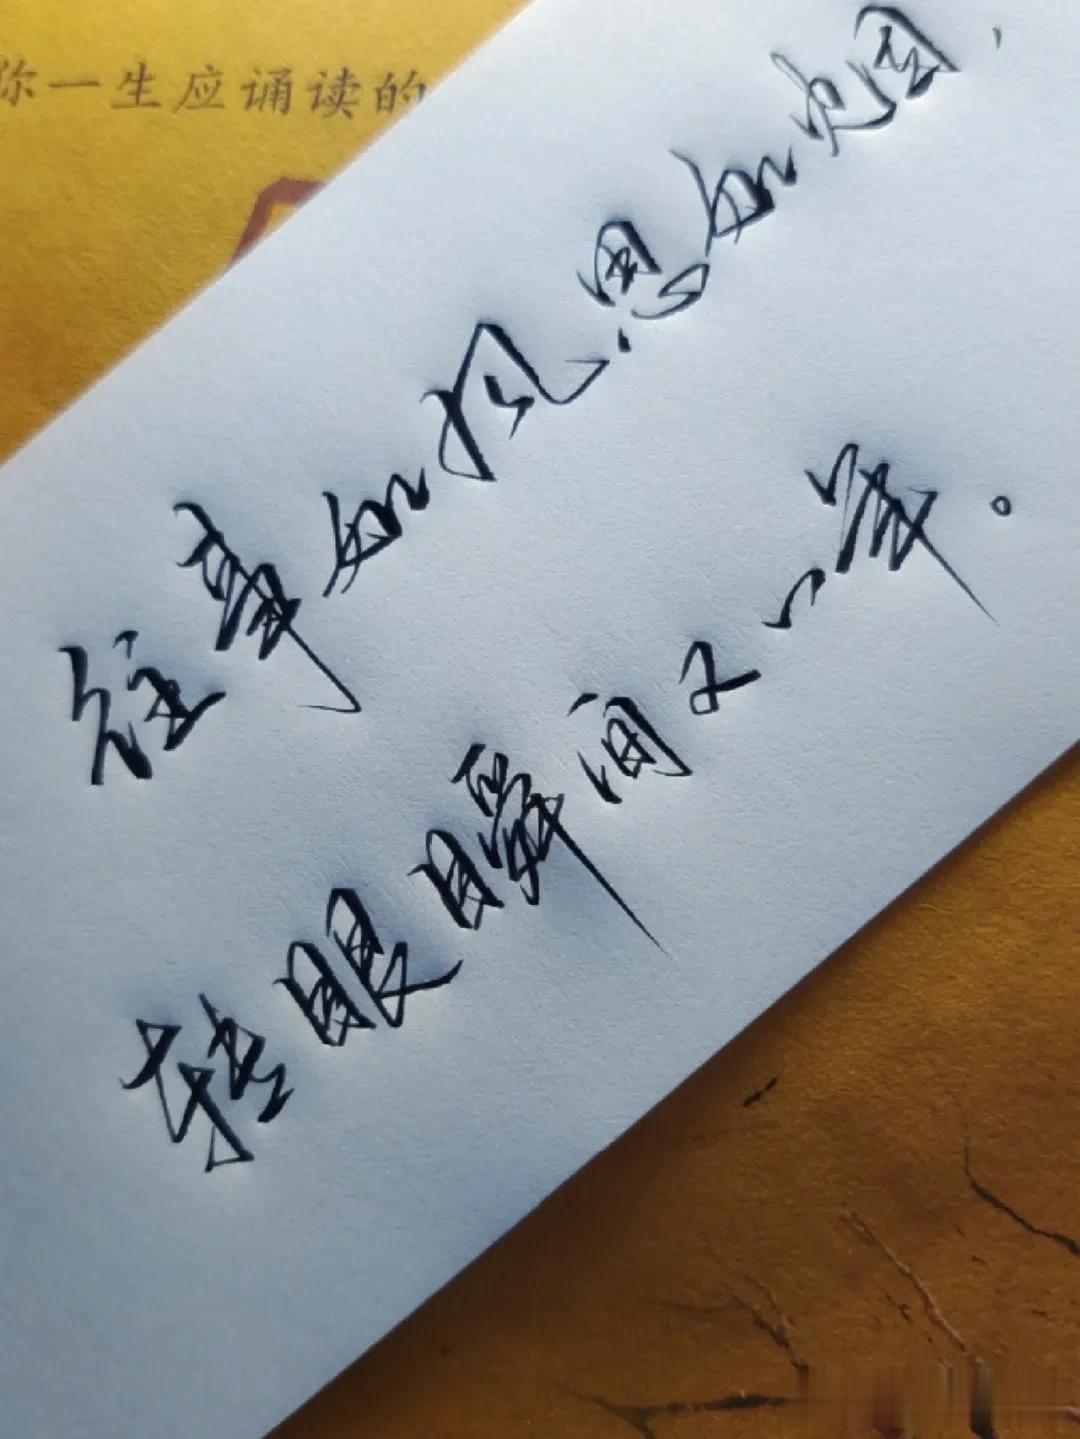 你一生应诵读的
往事如风思如烟，
转眼瞬间又一年。